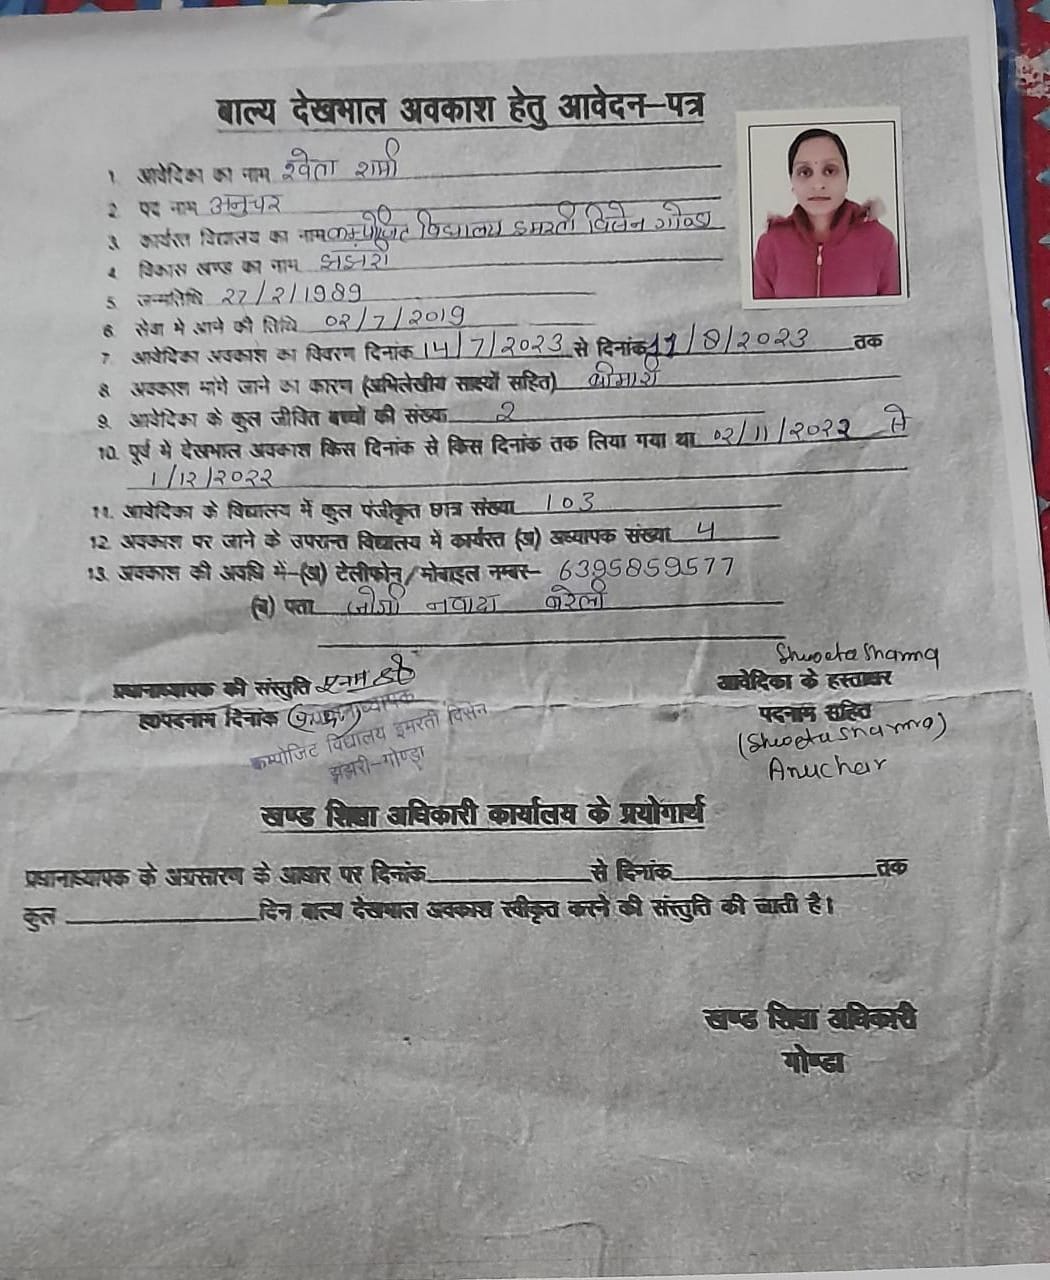 बाल्य देखभाल अवकाश हेतु आवेदन-पत्र
1. आवेदिका का नाम श्वेता शर्मा
2. पद नाम अनुचर
3. कार्यरत विद्यालय का नाम कम्पोजिट विद्यालय इमरती विसेन गोण्डा
4. विकास खण्ड का नाम झंझरी
5. जन्मतिथि 27/2/1989
6. सेवा में आने की तिथि 02/7/2019
7. आवेदिका अवकाश का विवरण दिनांक 14/7/2023 से दिनांक /8/2023 तक
8. अवकाश मांगे जाने का कारण (अभिलेखीय साक्ष्यों सहित) बीमारी
9. आवेदिका के कुल जीवित बच्चों की संख्या 2
10. पूर्व में देखभाल अवकाश किस दिनांक से किस दिनांक तक लिया गया था 02/11/2022 से
1/12/2022
11. आवेदिका के विद्यालय में कुल पंजीकृत छात्र संख्या 103
12. अवकाश पर जाने के उपरान्त विद्यालय में कार्यरत (अ) अध्यापक संख्या 4
13. अवकाश की अवधि में-(अ) टेलीफोन/मोबाइल नम्बर- 6395859577
(ब) पता जोगी नवादा बरेली
Shweta Sharma
प्रधानाध्यापक की संस्तुति
आवेदिका के हस्ताक्षर
एवं पदनाम दिनांक
प्रधानाध्यापक
पदनाम सहित
कम्पोजिट विद्यालय इमरती विसेन
(Shweta Sharma)
झंझरी-गोण्डा
Anuchar
खण्ड शिक्षा अधिकारी कार्यालय के प्रयोगार्थ
प्रधानाध्यापक के अग्रसारण के आधार पर दिनांक से दिनांक तक
कुल दिन बाल्य देखभाल अवकाश स्वीकृत करने की संस्तुति की जाती है।
खण्ड शिक्षा अधिकारी
गोण्डा